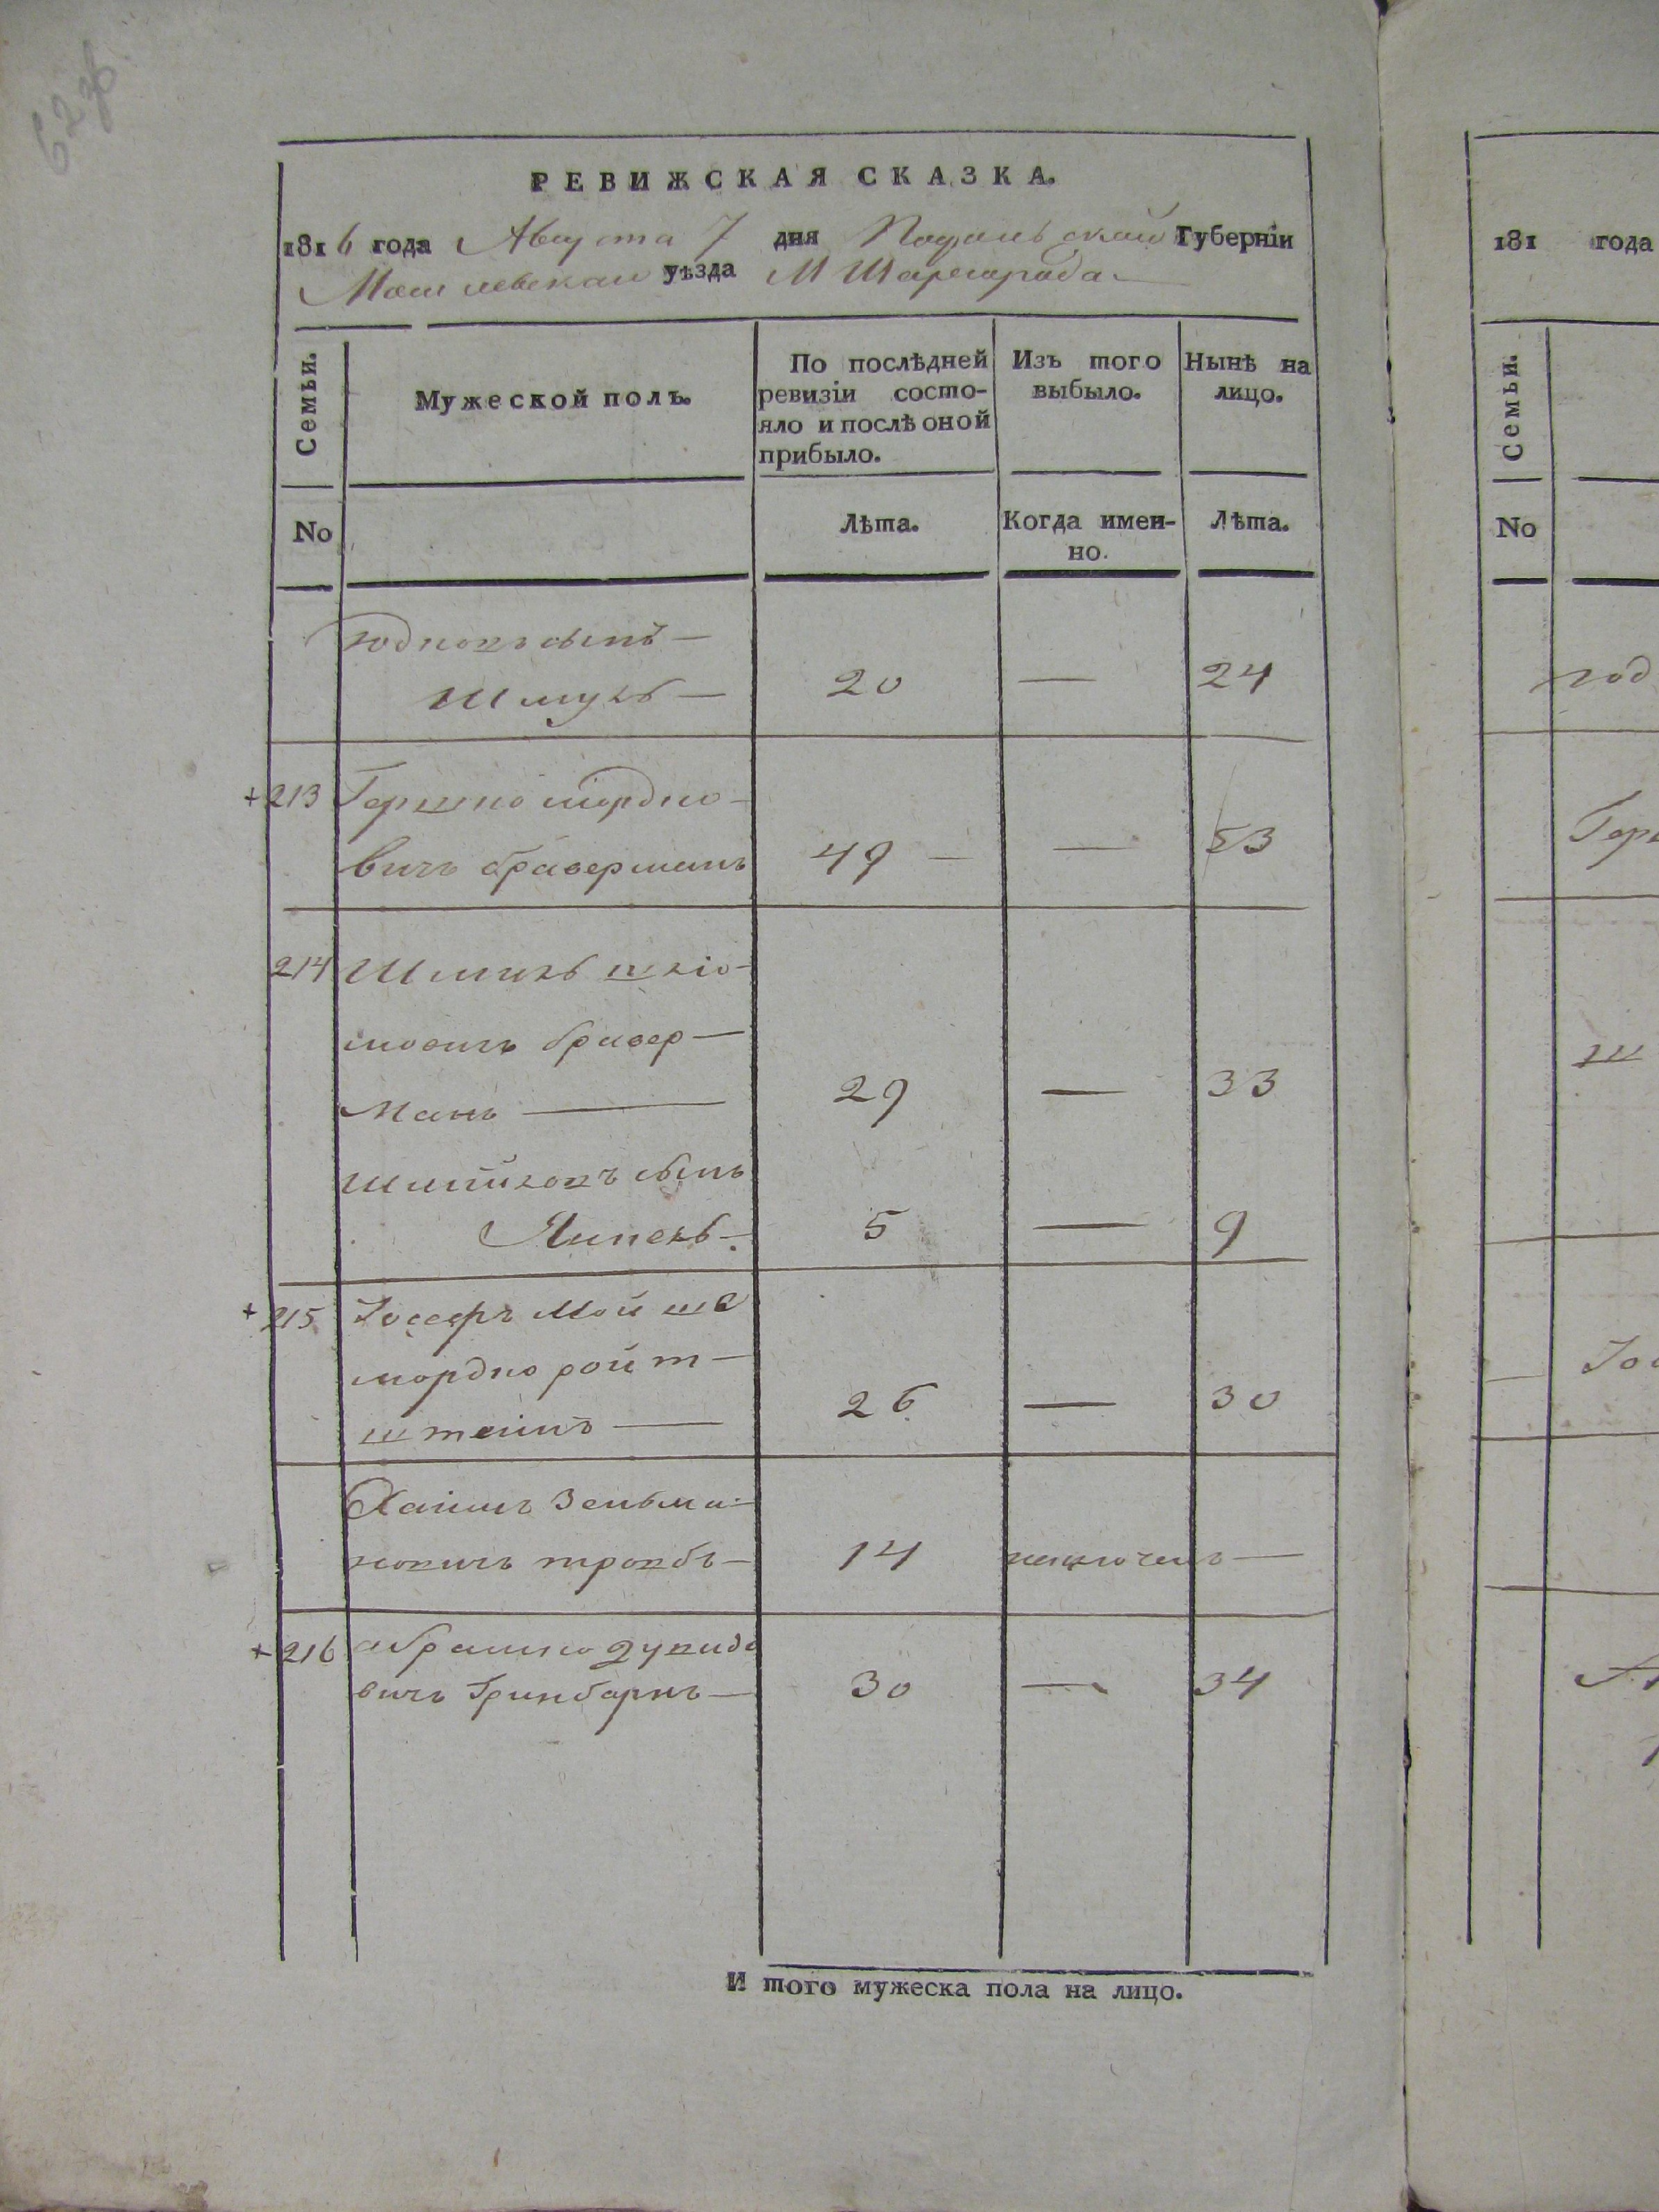 62об
РЕВИЖСКАЯ СКАЗКА.
1816 года Августа 7 дня Подольской Губерніи
Могилевскаго уѣзда М Шаргорода
Семьи.
Мужеской полъ.
По послѣдней ревизіи состояло и послѣ оной прибыло.
Изъ того выбыло.
Нынѣ на лицо.
No
Лѣта.
Когда именно.
Лѣта.
сынъ —
Шмуль — 20 — 24
+213 Гершко мордко-
вичъ браверманъ 49 — — 53
214 Шмиль
бравер —
манъ — 29 — 33
сынъ
5 — 9
+215 Іосефъ Мойше
мордко ройт —
штеинъ — 26 — 30
Хаимъ Зельма-
новичъ 14 исключенъ —
+216 абрамко
вичъ Гринбарнъ — 30 — 34
И того мужеска пола на лицо.
181 года
Семьи.
No